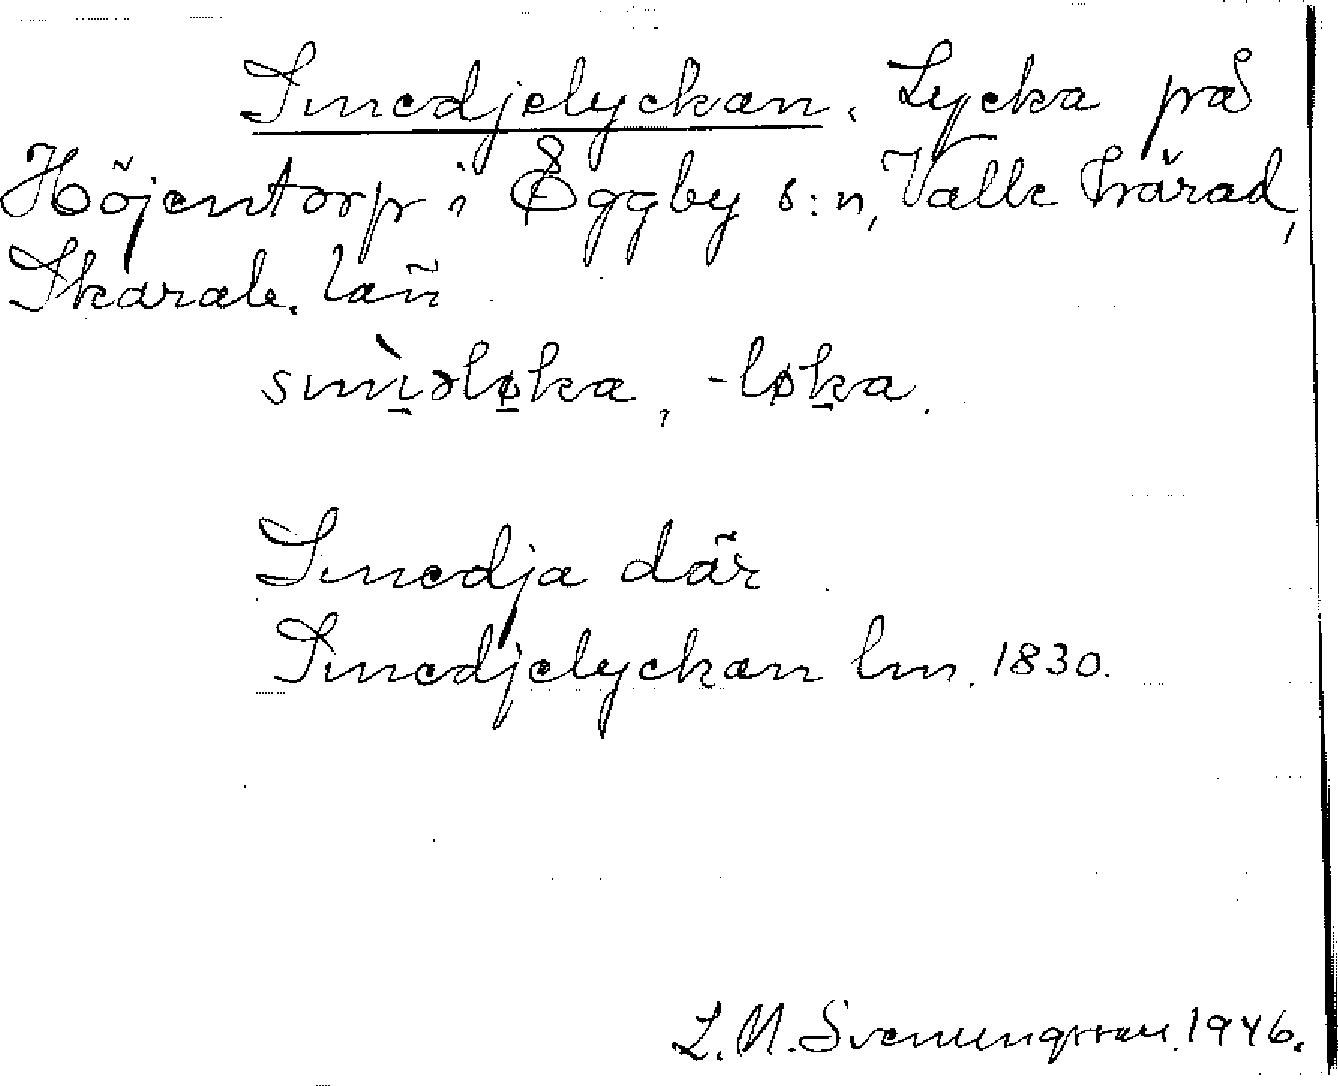 Smedjelyckan. Lycka på
Höjentorp i Eggby s:n, Valle härad,
Skarab. län
smì̱əlø̱ka, -løḵa.
Smedja där
Smedjelyckan lm. 1830.
L. M. Svenungsson. 1946.